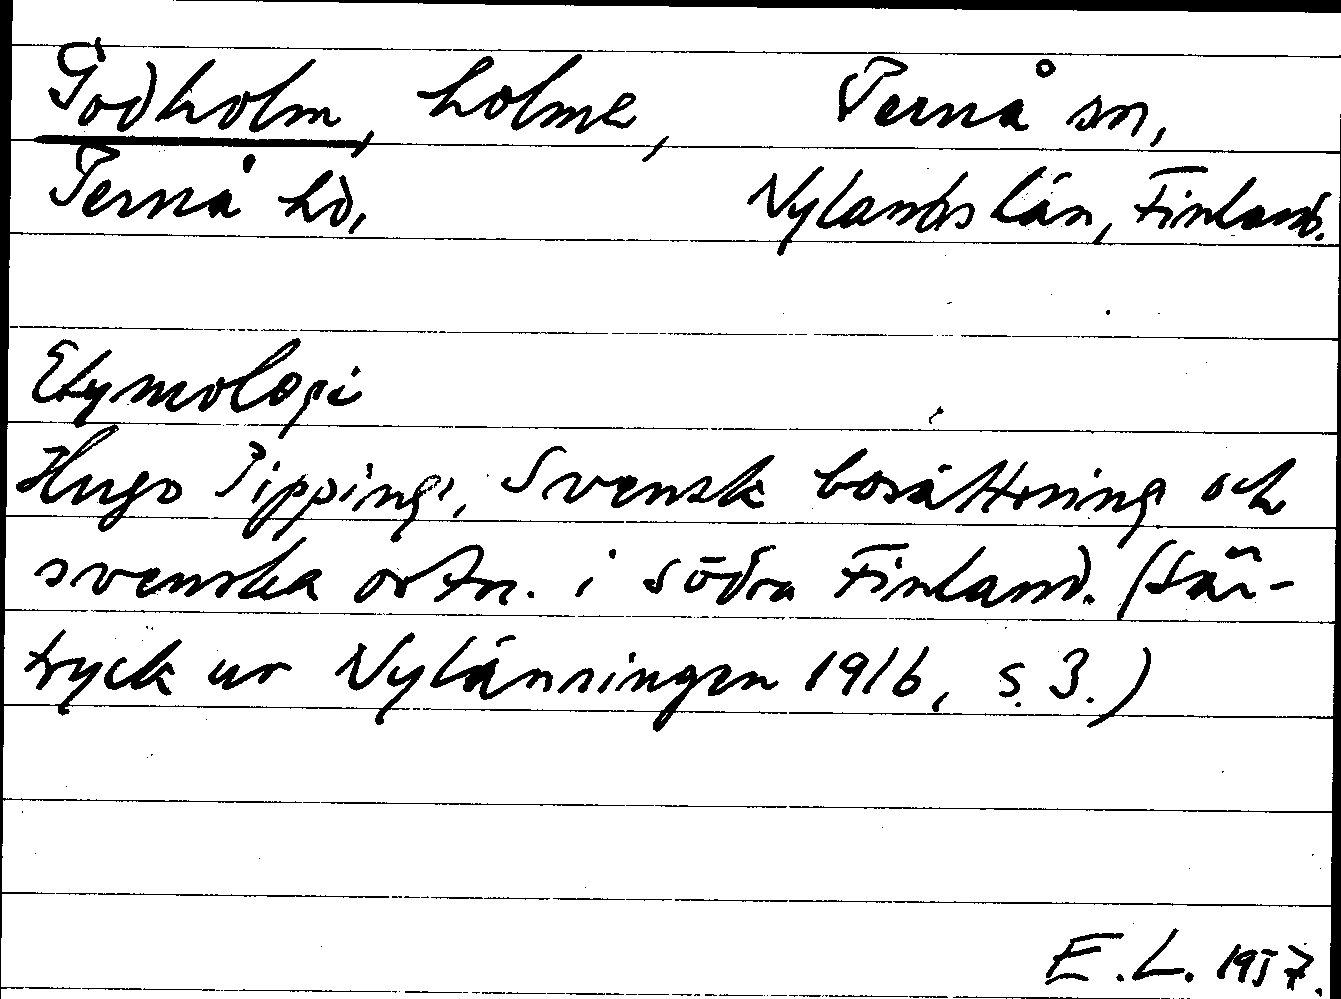 Godholm, holme, Pernå sn,
Pernå hd, Nylands län, Finland.
Etymologi
Hugo Pipping, Svensk bosättning och
svenska ortn. i södra Finland. (Sär-
tryck ur Nylänningen 1916, s. 3.)
E.L. 1957.